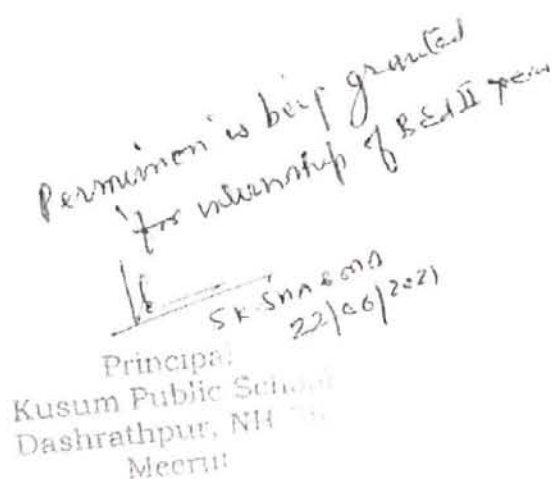 Permission is being granted
for internship of B Ed II year
SK SHARMA
22/06/2021
Principal
Kusum Public School
Dashrathpur, NH
Meerut